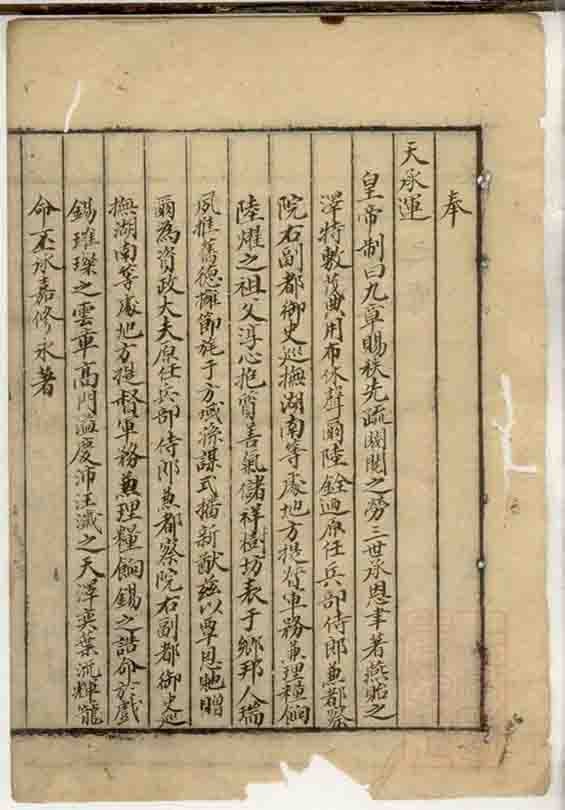 奉
天承運
皇帝制曰九章賜袟先疏閥閱之勞三世承恩聿著燕貽之
澤特敷茂典用布休聲爾陸銓迺原任兵部侍郎兼都察
院右副都御史巡撫湖南等處地方提督軍務兼理糧餉
陸燿之祖父淳心抱質善氣儲祥樹坊表于鄉邦人瑞
夙推舊德擁節旄于方岳孫謀式播新猷茲以覃恩貤贈
爾為資政大夫原任兵部侍郎兼都察院右副都御史巡
撫湖南等處地方提督軍務兼理糧餉錫之誥命於戲
錫璀璨之雲章高門溢慶沛汪濊之天澤奕葉流輝寵
命丕承嘉修永著